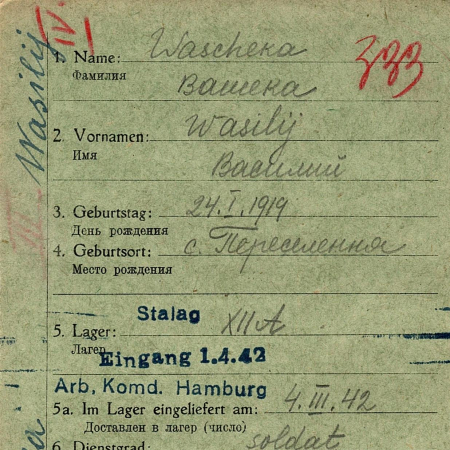 IV
Wasilij
1. Name: Wascheka
Фамилия
Вашека
333
2. Vornamen: Wasilij
Имя
Василий
3. Geburtstag: 24.I.1919
День рождения
4. Geburtsort: с. Переселенна
Место рождения
Stalag
5. Lager: XII A
Лагер
Eingang 1.4.42
Arb, Komd. Hamburg
5a. Im Lager eingeliefert am: 4.III.42
Доставлен в лагер (число)
6. Dienstgrad: soldat